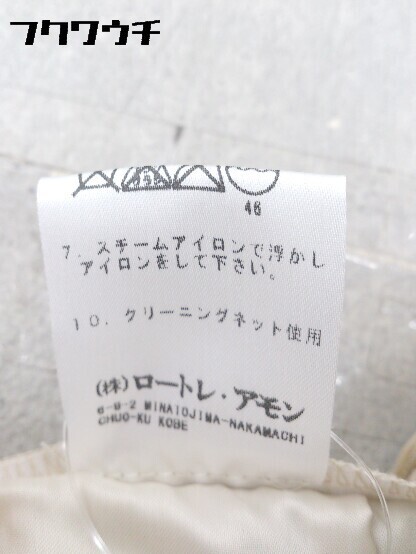 フクワウチ
46
7. スチームアイロンで浮かし
アイロンをして下さい。
10. クリーニングネット使用
(株)ロートレ・アモン
6-9-2 MINATOJIMA-NAKAMACHI
CHUO-KU KOBE